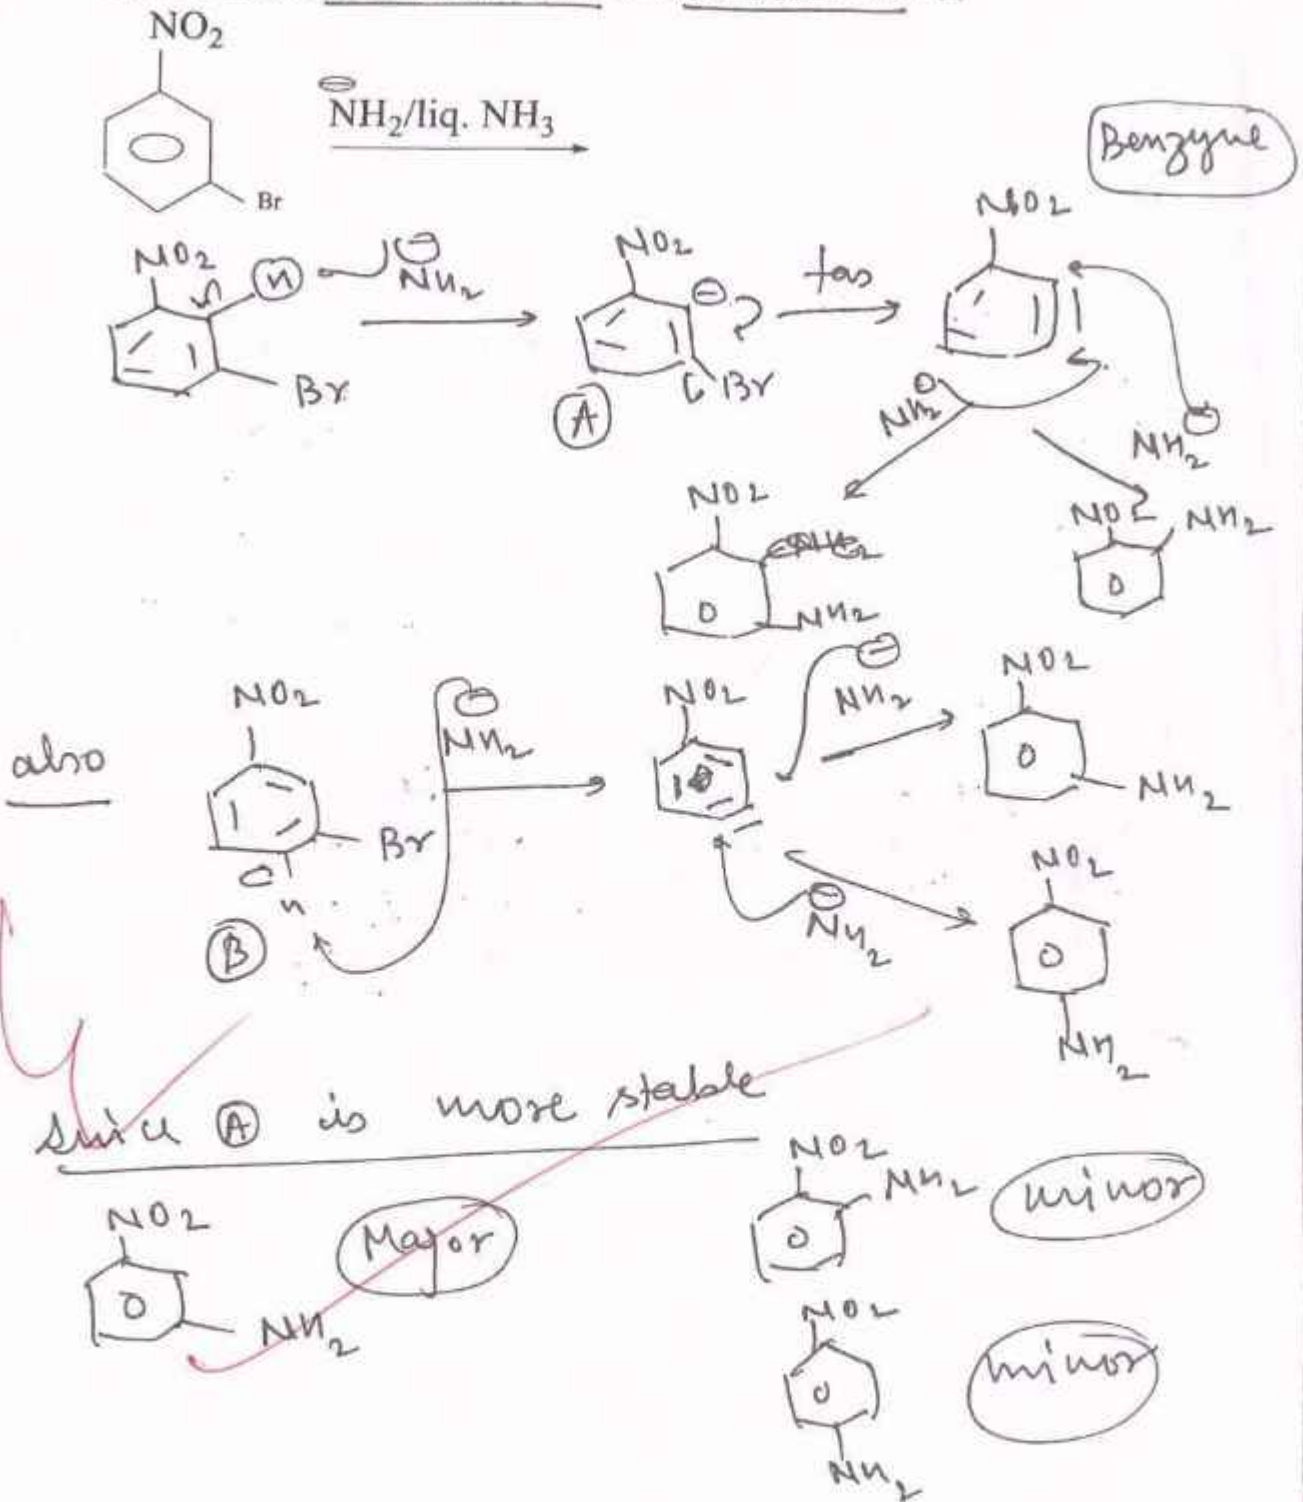 NO2
⊖
NH2/liq. NH3
Br
Benzyne
NO2 H ⊖ NH2
Br
NO2 ⊖ fas
Br
A
NO2
NH2
⊖
NH2
NO2
NH2
NO2 NH2
also
NO2
⊖
NH2
Br
H
B
NO2
⊖
NH2
NO2
NH2
⊖
NH2
NO2
NH2
Since A is more stable
NO2
NH2
Major
NO2
NH2
minor
NO2
NH2
minor